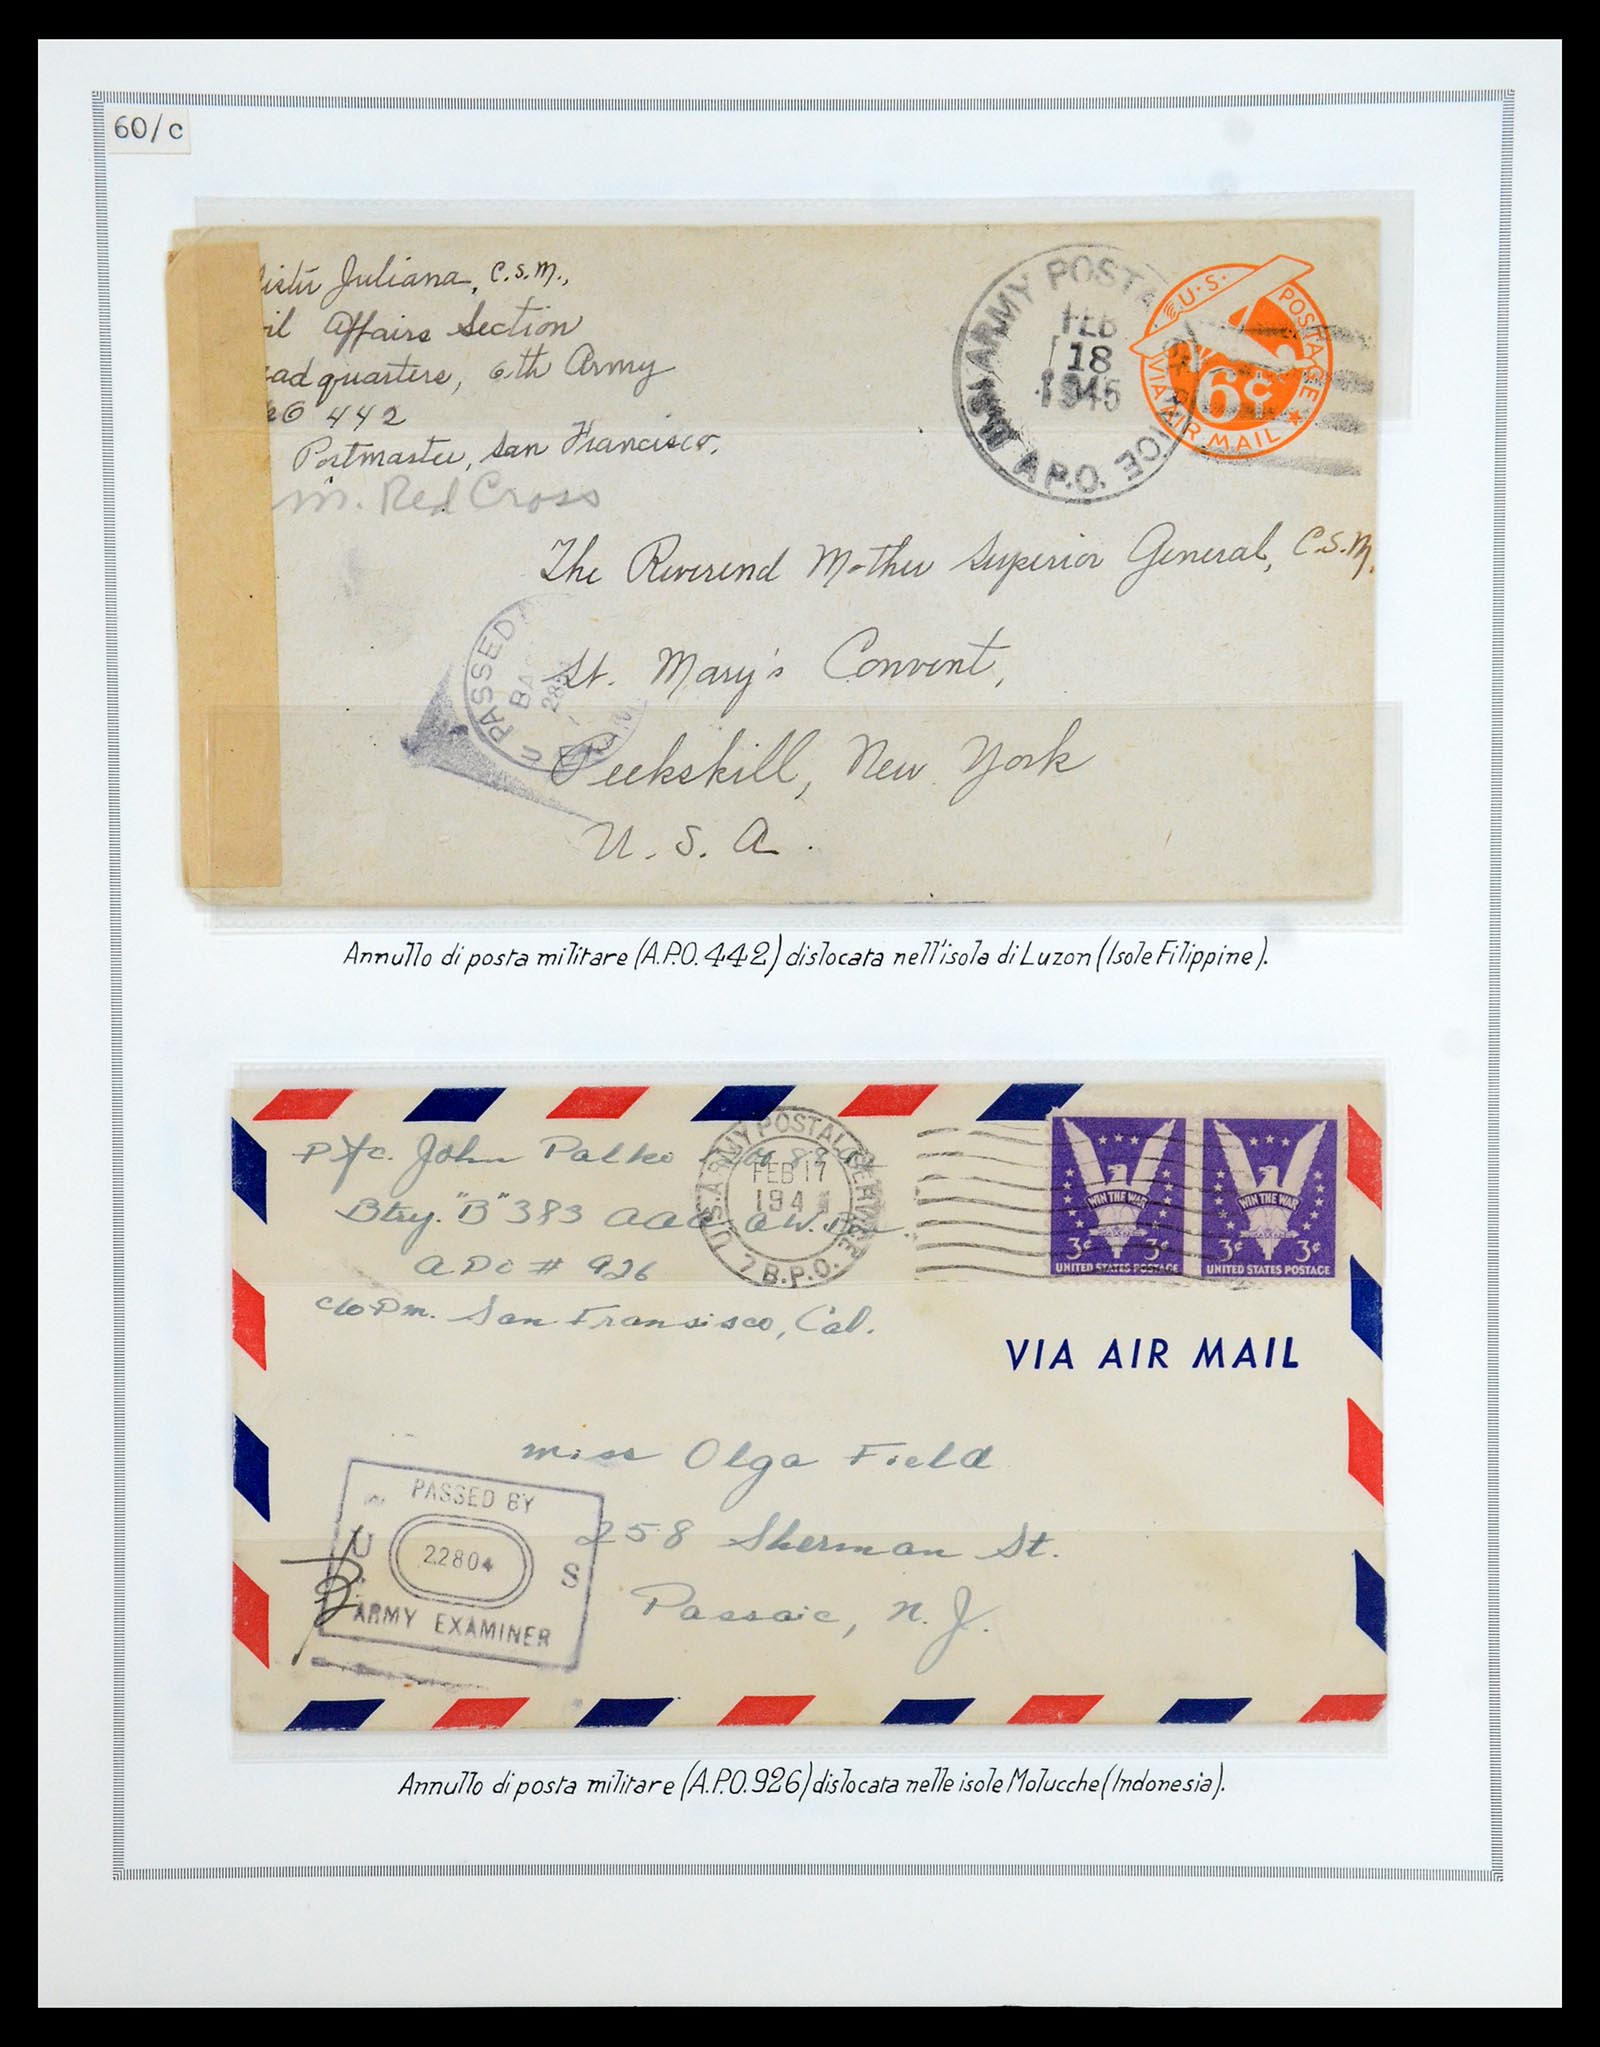 60/c
Juliana, C.S.M.,
Affairs Section
quarters, 6th Army
442
Postmaster, San Francisco.
m. Red Cross
U.S. ARMY POSTAL
FEB
18
1945
A.P.O.
U.S. POSTAGE
6¢
VIA AIR MAIL
The Reverend Mother Superior General, C.S.M.
St. Mary's Convent,
Peekskill, New York
U.S.A.
PASSED
BA
Annullo di posta militare (A.P.O. 442) dislocata nell'isola di Luzon (Isole Filippine).
Pfc. John Palko
Btry. "B" 383 AAA AW. Bn.
APO # 926
c/o Pm. San Fransisco, Cal.
U.S. ARMY POSTAL SERVICE
FEB 17
194
7 B.P.O.
WIN THE WAR
3¢ 3¢
UNITED STATES POSTAGE
WIN THE WAR
3¢ 3¢
UNITED STATES POSTAGE
VIA AIR MAIL
Miss Olga Field
258 Sherman St.
Passaic, N.J.
PASSED BY
U S
22804
ARMY EXAMINER
Annullo di posta militare (A.P.O. 926) dislocata nelle isole Molucche (Indonesia).